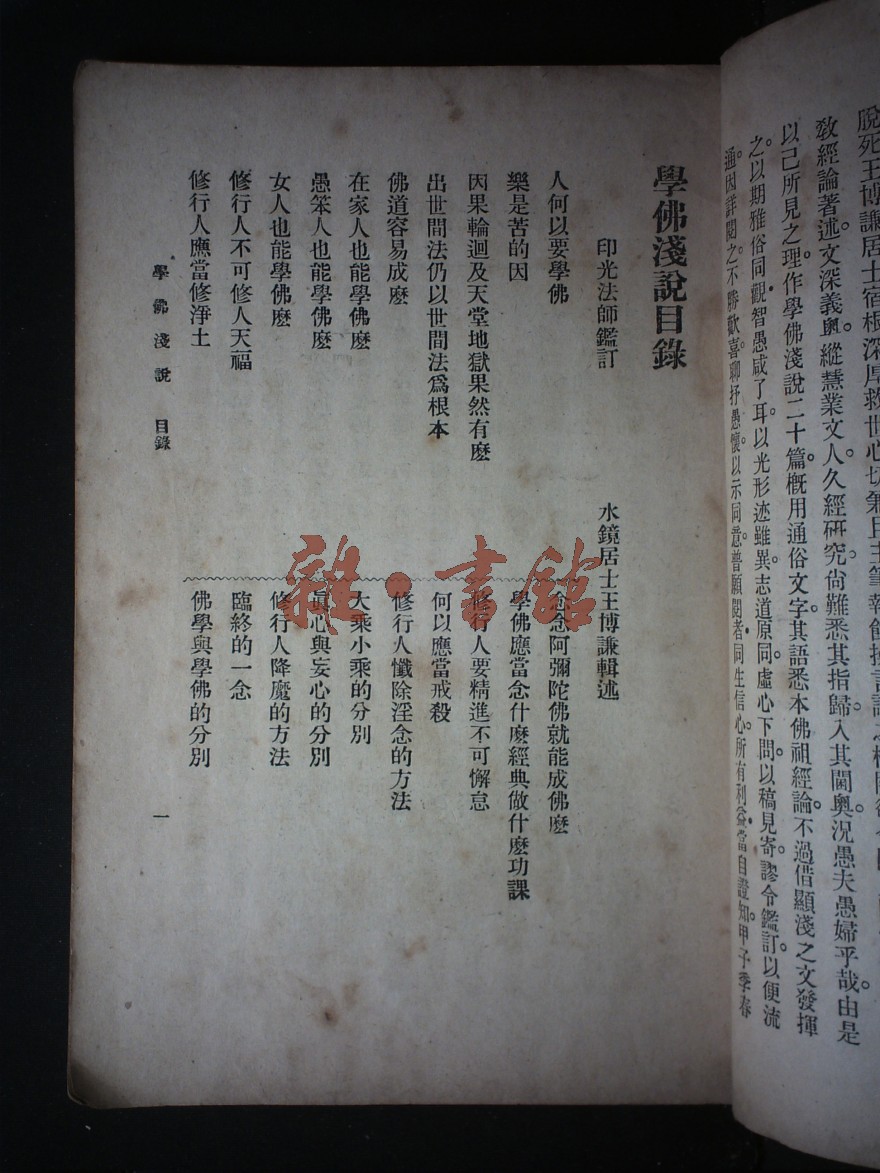 脫死王博謙居士宿根深厚救世心切
教經論著述文深義奧。縱慧業文人。久經研究。尙難悉其指歸。入其閫奧。況愚夫愚婦乎哉。由是
以己所見之理。作學佛淺說二十篇。槪用通俗文字。其語悉本佛祖經論。不過借顯淺之文發揮
之。以期雅俗同觀。智愚咸了耳。以光形迹雖異。志道原同。虛心下問。以稿見寄。謬令鑑訂。以便流
通。因詳閱之。不勝歡喜。聊抒愚懷。以示同志。普願閱者。同生信心。所有利益。當自證知。甲子季春
學佛淺說目錄
印光法師鑑訂
水鏡居士王博謙輯述
人何以要學佛
樂是苦的因
因果輪迴及天堂地獄果然有麽
出世間法仍以世間法爲根本
佛道容易成麽
在家人也能學佛麽
愚笨人也能學佛麽
女人也能學佛麽
修行人不可修人天福
修行人應當修淨土
念念阿彌陀佛就能成佛麽
學佛應當念什麽經典做什麽功課
修行人要精進不可懈怠
何以應當戒殺
修行人懺除淫念的方法
大乘小乘的分別
眞心與妄心的分別
修行人降魔的方法
臨終的一念
佛學與學佛的分別
學佛淺說 目錄 一
雜·書館